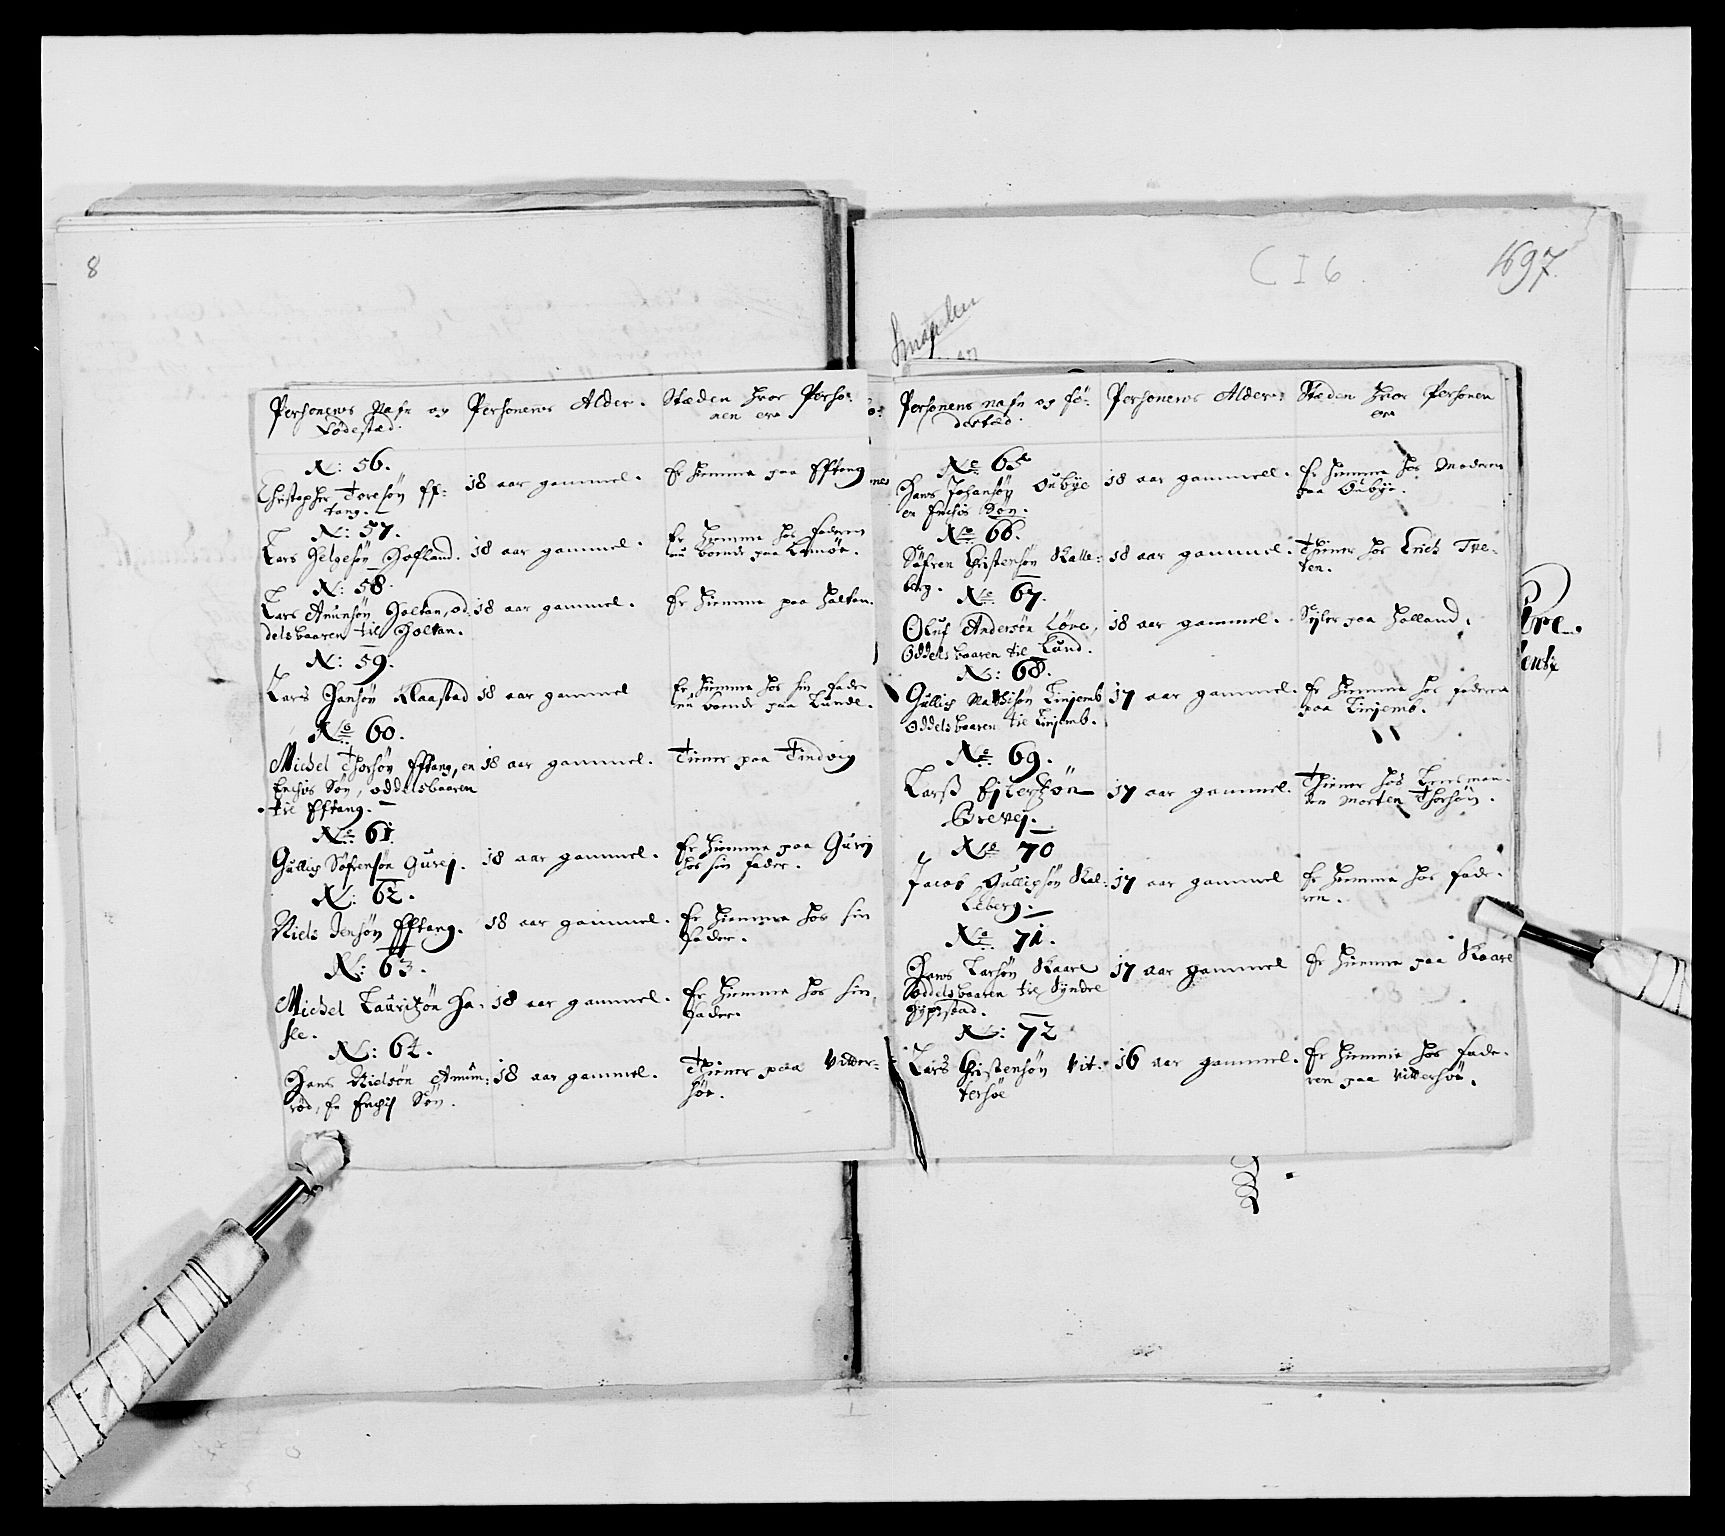 8
C I 6
1697
Personens Nafn og
Fødestæd.
Personens Alder.
Stæden hvor Perso-
nen er
N: 56.
Christopher Toresøn Eff-
tang.
18 aar gammel.
Er hiemme paa Efftang
N: 57.
Lars Helgesøn Hofland.
18 aar gammel.
Er hiemme hos faderen
nu boende paa
N: 58.
Lars Amunsøn Holtan, od-
delsbaaren til Holtan.
18 aar gammel.
Er hiemme paa Holtan.
N: 59.
Lars Hansøn Klaastad
18 aar gammel
Er hiemme hos sin fader
nu boende paa Lunde.
No 60.
Michel Thorsøn Efftang, en
Enchis Søn, oddelsbaaren
til Efftang.
18 aar gammel.
Tiener paa Tindvig
No 61.
Gullich Søfrensøn Gurej.
18 aar gammel.
Er hiemme paa Gurej
hos sin fader.
N: 62.
Niels Jensøn Efftang.
18 aar gammel.
Er hiemme hos sin
fader.
N: 63.
Michel Lauritzøn Ha-
sle.
18 aar gammel.
Er hiemme hos sin
fader.
N: 64.
Hans Nielsøn Amun-
rød, Er Enchis Søn.
18 aar gammel.
Thiener paa Vitter-
søe.
Personens nafn og fø-
destæd.
Personens Alder
Stæden hvor Personen
er
No 65
Hans Johansøn Oubye
en Enchis Søn.
18 aar gammell.
Er hiemme hos Moderen
paa Oubye.
No 66.
Søfren Christensøn Kalle-
berg.
18 aar gammel.
Thiener hos Erich Tve-
ten.
No 67.
Oluf Andersøn Løve,
Oddelsbaaren til Lund.
18 aar gammel.
Sejler paa Holland.
N: 68.
Gullich Mathisøn Linjemb
Oddelsbaaren til Linjemb.
17 aar gammel.
Er hiemme hos faderen
paa Linjemb.
No 69.
Larss Ejlertzøn
Brevej.
17 aar gammel.
Thiener hos Lensman-
den Morten Thorsøn.
No 70
Jacob Gullichsøn Kal-
leberg.
17 aar gammel
Er hiemme hos fade-
ren.
No 71.
Hans Larsøn Kaare
Oddelsbaaren til Syndre
17 aar gammel
Er hiemme paa Kaare
N: 72
Lars Christensøn Vit-
tersøe
16 aar gammel.
Er hiemme hos fade-
ren paa Vittersøe.